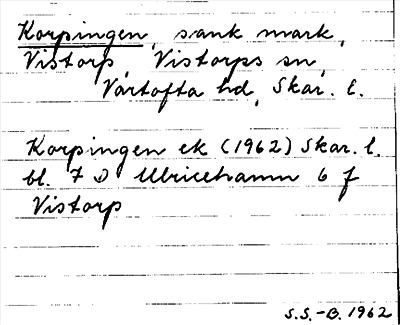 Korpingen, sank mark,
Vistorp Vistorps sn,
Vartofta hd, Skar. l.
Korpingen ek (1962) Skar. l.
bl. 7 D Ulricehamn 6 f
Vistorp
S.S.-B. 1962